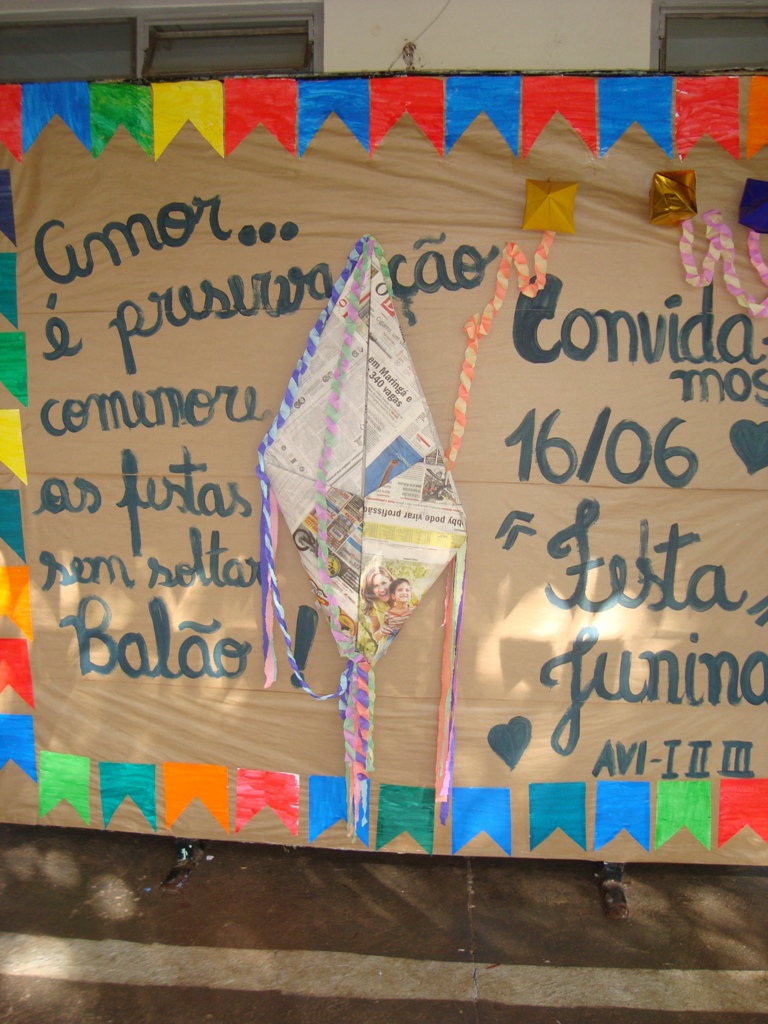 Amor...
é preservação
comemore
as festas
sem soltar
Balão !
Convida-
mos
16/06
"Festa
Junina
AVI-I II III
em Maringá e
340 vagas
bby pode virar profissão